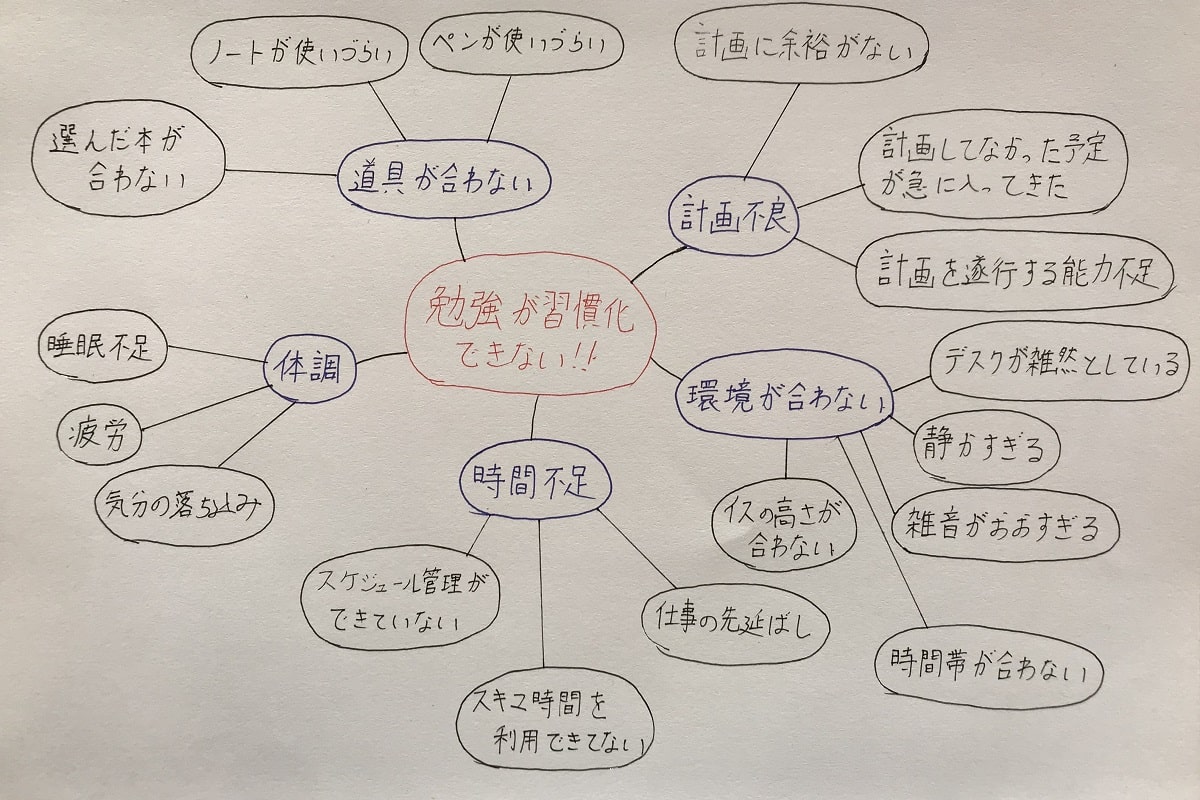 ノートが使いづらい
ペンが使いづらい
計画に余裕がない
選んだ本が
合わない
道具が合わない
計画してなかった予定
が急に入ってきた
計画不良
計画を遂行する能力不足
勉強が習慣化
できない!!
睡眠不足
体調
疲労
気分の落ち込み
環境が合わない
デスクが雑然としている
静かすぎる
雑音がおおすぎる
イスの高さが
合わない
時間帯が合わない
時間不足
スケジュール管理が
できていない
仕事の先延ばし
スキマ時間を
利用できてない